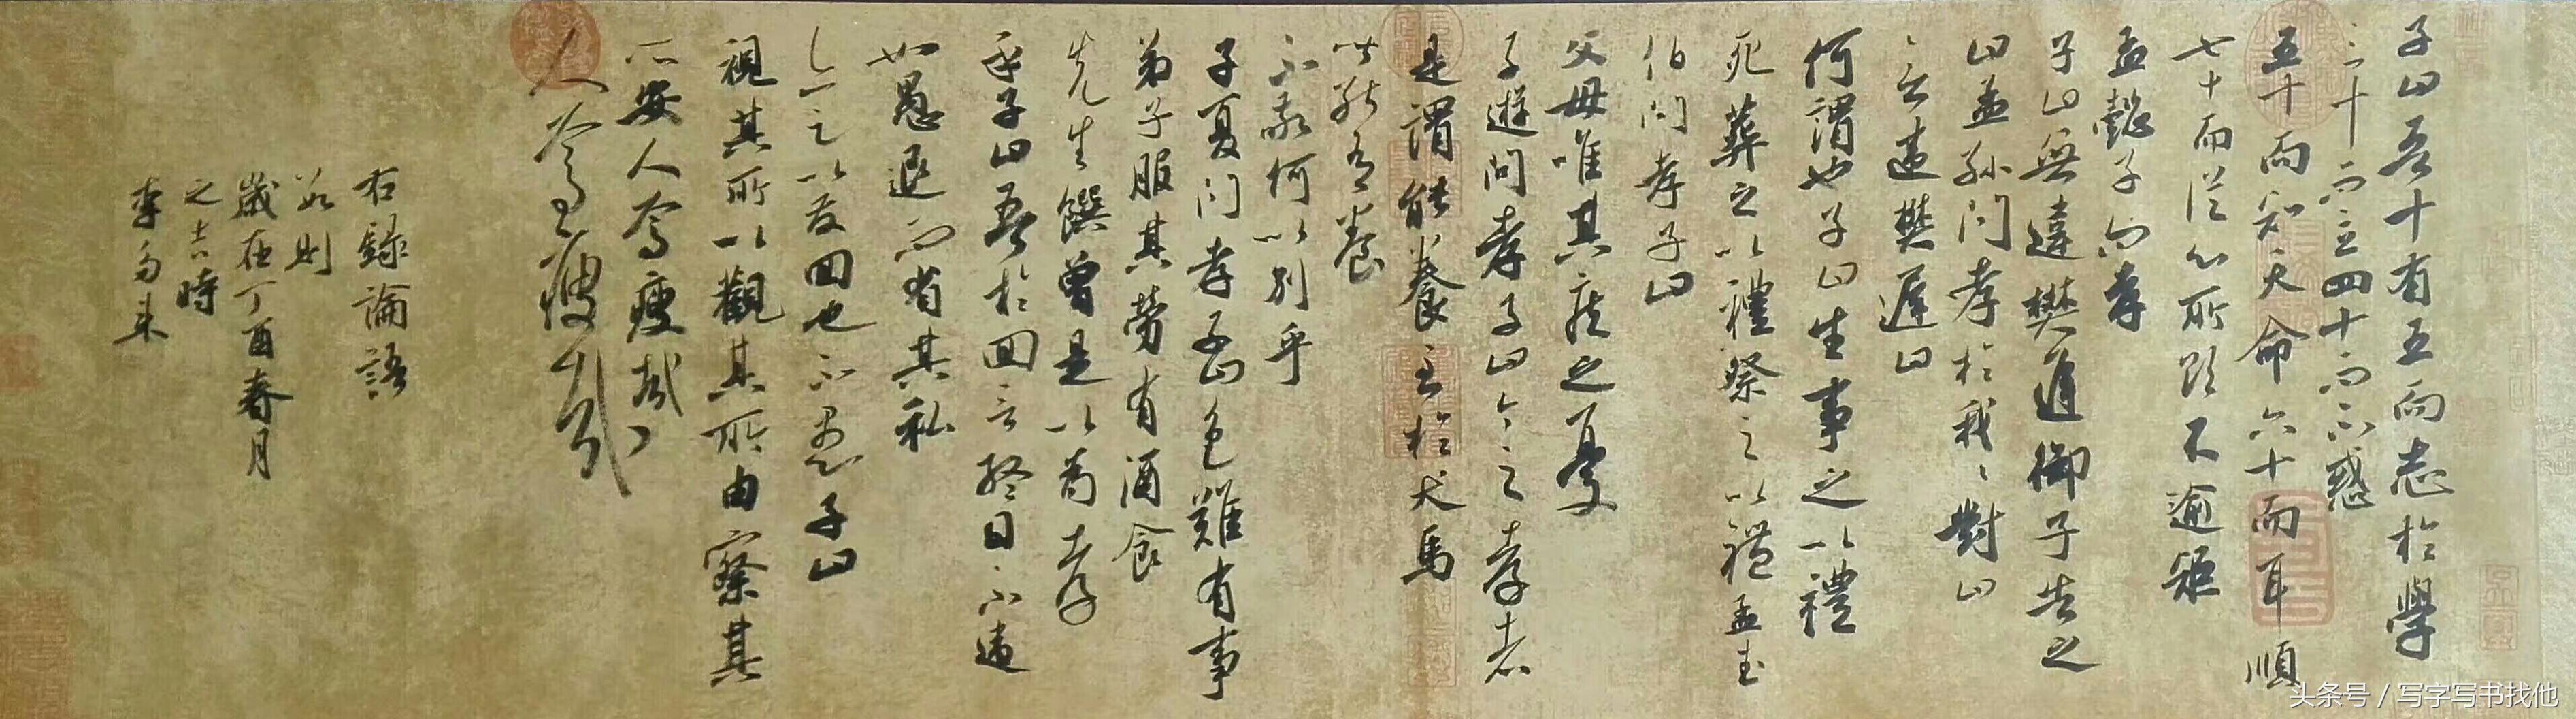 子曰吾十有五而志於學
三十而立四十而不惑
五十而知天命六十而耳順
七十而從心所欲不逾矩
孟懿子問孝
子曰無違樊遲御子告之
曰孟孫問孝於我々對曰
無違樊遲曰
何謂也子曰生事之以禮
死葬之以禮祭之以禮孟武
伯問孝子曰
父母唯其疾之憂
子遊問孝子曰今之孝者
是謂能養至於犬馬
皆能有養
不敬何以別乎
子夏問孝子曰色難有事
弟子服其勞有酒食
先生饌曾是以為孝
乎子曰吾於回言終日不違
如愚退而省其私
亦足以發回也不愚子曰
視其所以觀其所由察其
所安人焉廋哉
人焉廋哉
右錄論語
數則
歲在丁酉春月
之吉時
李
头条号 / 写字写书找他